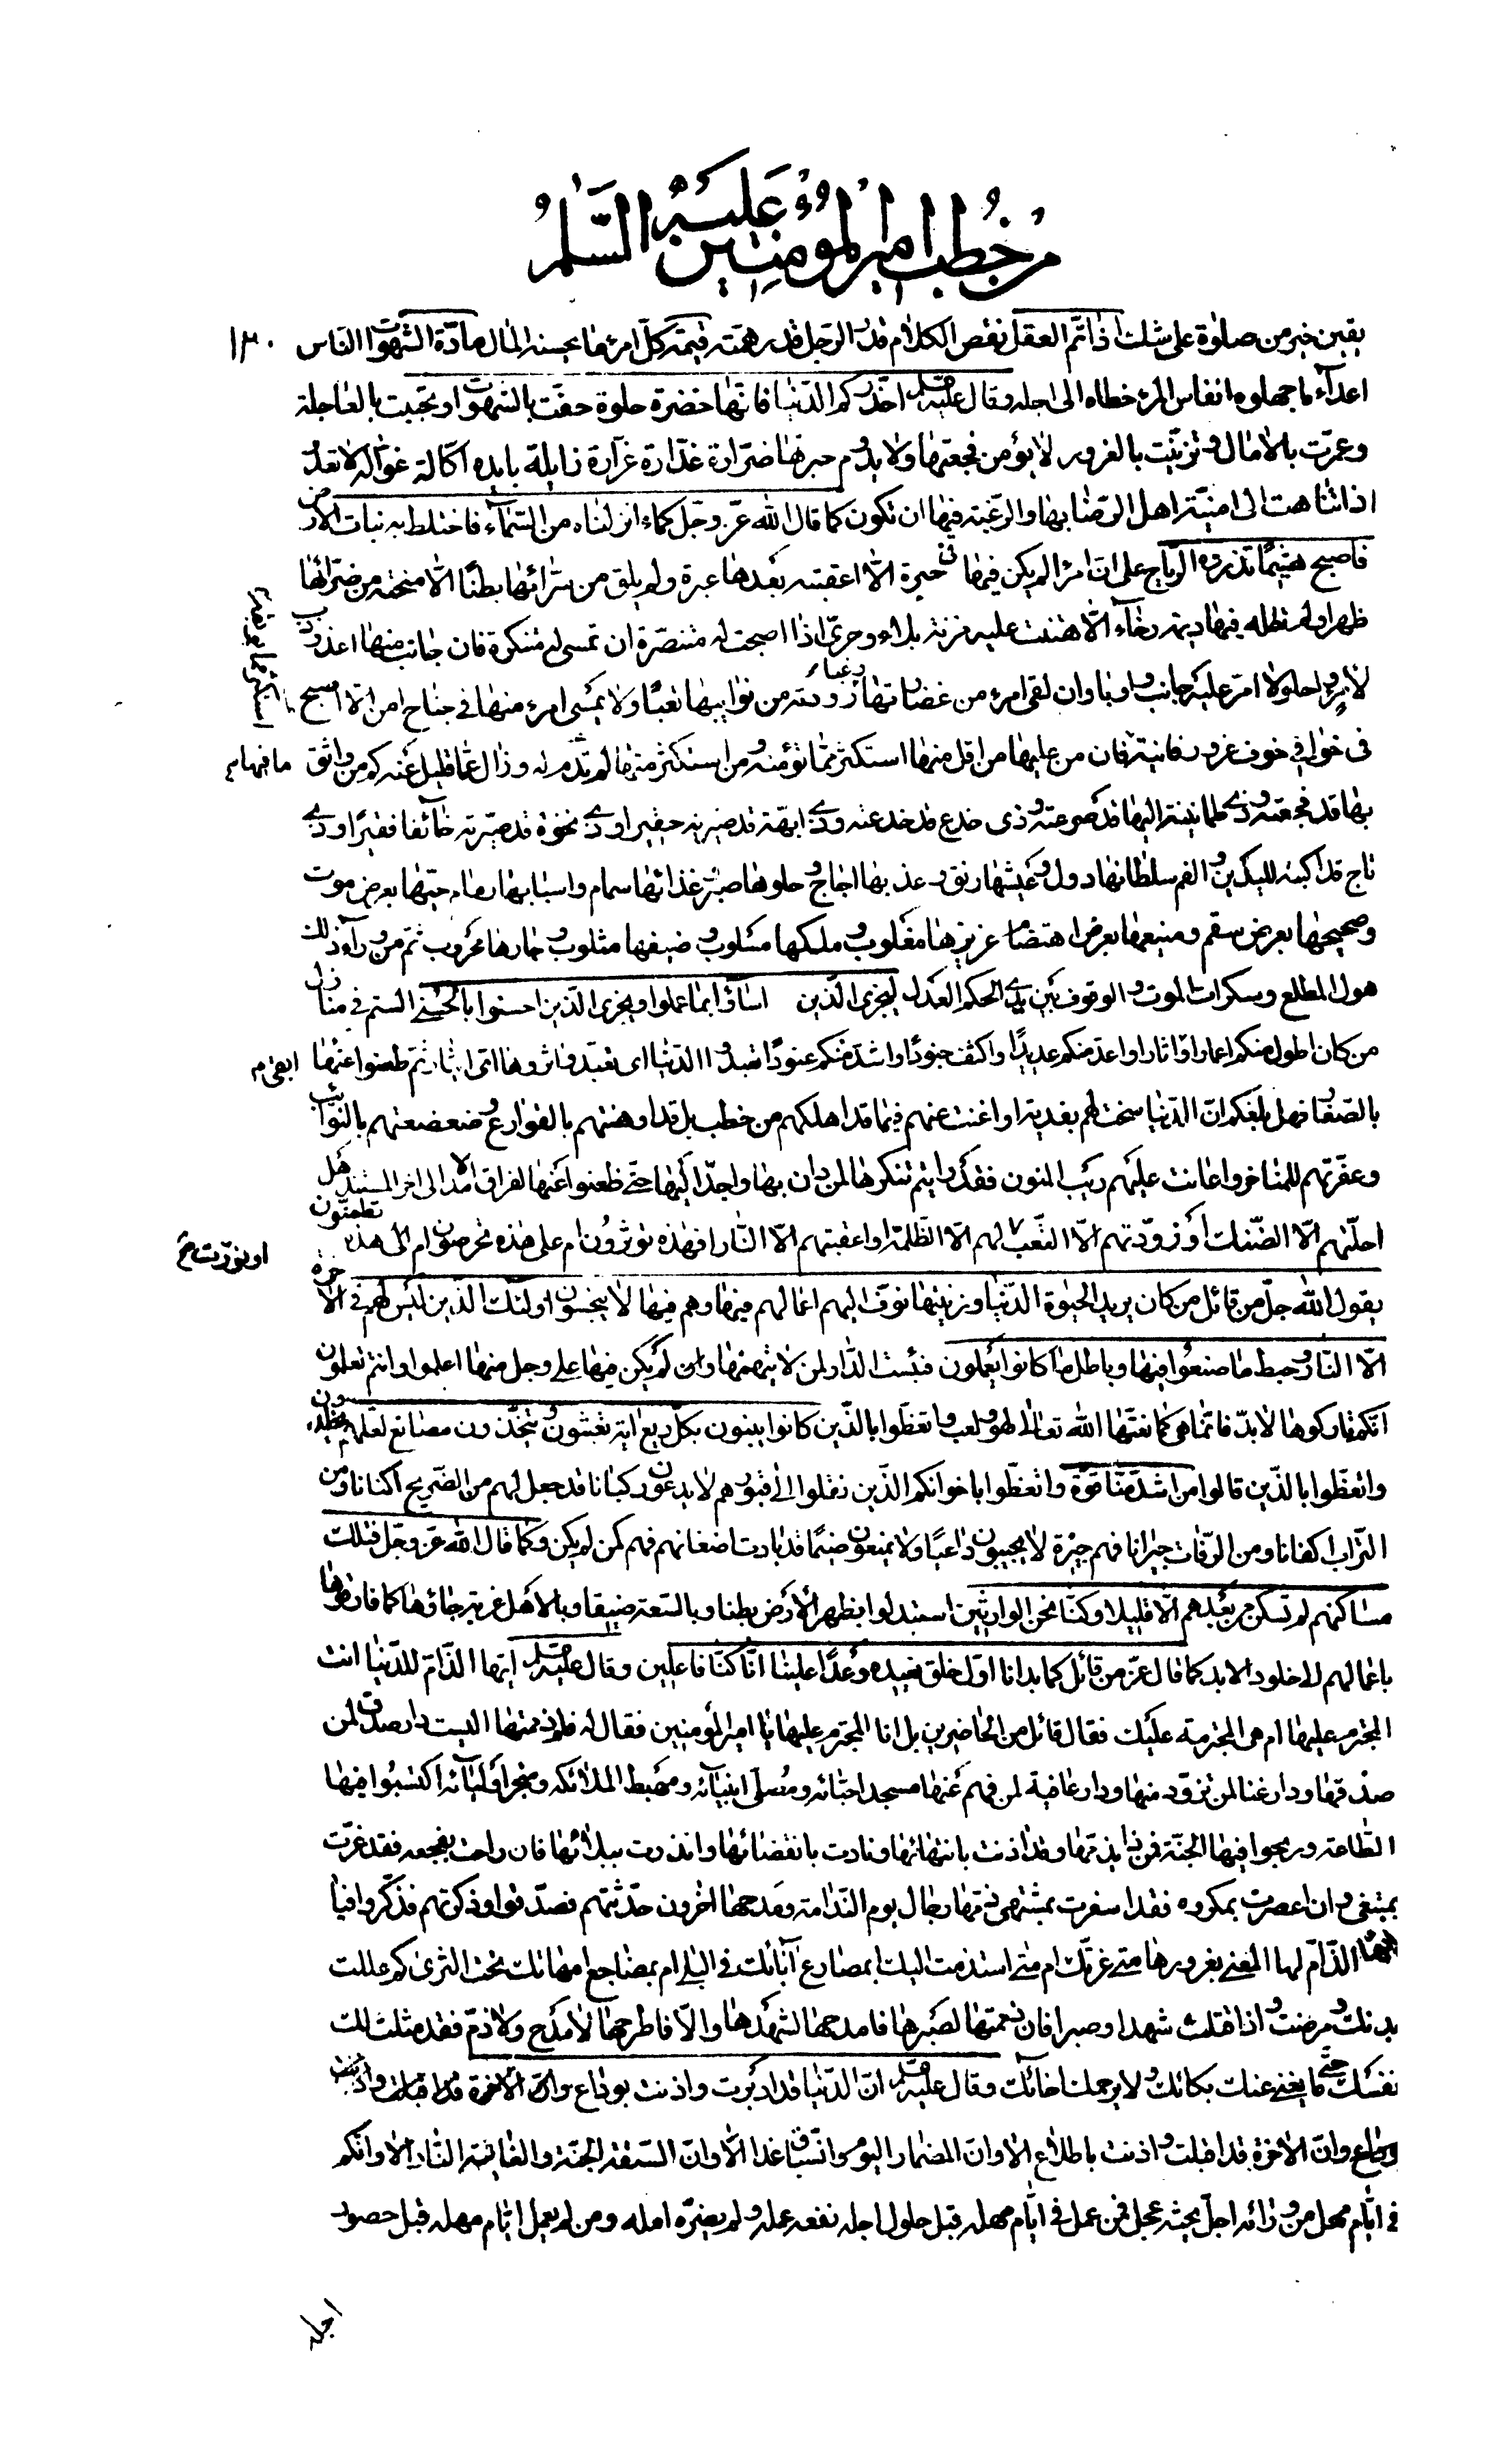 من خطب امير المؤمنين عليه السلم
يقين خير من صلوة على شك اذا تم العقل نقص الكلام قدر الرجل قدر همته قيمة كل امرء ما يحسنه المال مادة الشهوات الناس ١٣٠
اعداء ما جهلوه انفاس المرء خطاه الى اجله وقال عليه احذركم الدنيا فانها خضرة حلوة حفت بالشهوات وتحببت بالعاجلة
وعمرت بالامال وتزينت بالغرور لا يؤمن فجعتها ولا يدوم حبرتها ضرارة غدارة غرارة زايلة بايده اكالة غوالة لا تعد
اذا تناهت الى امنية اهل الرضا بها والرغبة فيها ان تكون كما قال الله عز وجل كماء انزلناه من السماء فاختلط به نبات الارض
فاصبح هشيما تذروه الرياح على ان امرا لم يكن فيها في حبرة الا اعقبته بعدها عبرة ولم يلق من سرائها بطنا الا منحته من ضرائها
ظهرا ولم تظله فيها ديمة رخاء الا هتنت عليه مزنة بلاء وحرى اذا اصبحت له متنصرة ان تمسى له متنكرة فان جانب منها اعذوذب
لامرء واحلولا امر عليه جانب واوبا وان لقى امرء من غضارتها زودته من نوائبها تعبا ولا يمسى امرء منها في جناح امن الا اصبح
في خوافي خوف غرور فانية فان من عليها من اقل منها استكثر مما تؤمنه ومن استكثر منها لم تدم له وزال عما قليل عنه كم من واثق ما فيها
بها قد فجعته وذى طمانينة اليها قد صرعته وذى خدع قد خدعته وذى ابهة قد صيرته حقيرا وذى نخوة قد صيرته خائفا فقيرا وذى
تاج قد اكبته لليدين والفم سلطانها دول وعيشها رنق وعذبها اجاج وحلوها صبر غذائها سمام واسبابها رمام حيها بعرض موت
وصحيحها بعرض سقم ومنيعها بعرض اهتضام عزيزها مغلوب وملكها مسلوب وضيفها مثلوب وجارها محروب ثم من وراء ذلك
هول المطلع وسكرات الموت والوقوف بين يدى الحكم العدل ليجزى الذين اساؤا بما عملوا ويجزى الذين احسنوا بالحسنى الستم في منازل
من كان اطول منكم اعمارا واثارا واعد منكم عديدا واكثف جنودا واشد منكم عنودا تعبدوا الدنيا اى تعبد واثروها اى ايثار ثم ظعنوا عنها ابقى م
بالصغار فهل بلغكم ان الدنيا سخت لهم بفدية او اغنت عنهم فيما قد اهلكهم من خطب بل قد اوهنتهم بالقوارع وضعضعتهم بالنوائب
وعقرتهم للمناخر واعانت عليهم ريب المنون فقد رايتم تنكرها لمن دان بها واجد اليها حتى ظعنوا عنها لفراق الامد الى اخر المستند هل
احلتهم الا الضنك او زودتهم الا التعب لهم الا الظلمة او اعقبتهم الا النار افهذه تؤثرون ام على هذه تحرصون ام الى هذه تطمئنون او نورت خ
يقول الله جل من قائل من كان يريد الحيوة الدنيا وزينتها نوف اليهم اعمالهم فيها وهم فيها لا يبخسون اولئك الذين ليس لهم في الاخرة
الا النار وحبط ما صنعوا فيها وباطل ما كانوا يعملون فبئست الدار لمن لا يتهمها وان لم يكن فيها على وجل منها اعلموا وانتم تعلمون
انكم تاركوها لا بد فانما هي كما نعتها الله تعالى لهو ولعب واتعظوا بالذين كانوا يبنون بكل ريع اية تعبثون وتتخذون مصانع لعلهم يخلدون
واتعظوا بالذين قالوا من اشد منا قوة واتعظوا باخوانكم الذين نقلوا الى قبورهم لا يدعون ركبانا قد جعل لهم من الضريح اكنانا ومن
التراب اكفانا ومن الرفات جيرانا فهم جيرة لا يجيبون داعيا ولا يمنعون ضيما قد بادت اضغانهم فهم كمن لم يكن وكما قال الله عز وجل فتلك
مساكنهم لم تسكن من بعدهم الا قليلا وكنا نحن الوارثين استبدلوا بظهر الارض بطنا وبالسعة ضيقا وبالاهل غربة جاؤها كما فارقوها
باعمالهم الى خلود الابد كما قال عز من قائل كما بدانا اول خلق نعيده وعدا علينا انا كنا فاعلين وقال عليه ايها الذام للدنيا انت
المجترم عليها ام هي المجترمة عليك فقال قائل من الحاضرين بل انا المجترم عليها يا امير المؤمنين فقال له فلم ذممتها اليست دار صدق لمن
صدقها ودار غنا لمن تزود منها ودار عافية لمن فهم عنها مسجد احبائه ومصلى انبيائه ومهبط الملائكه ومتجر اوليائه اكتسبوا فيها
الطاعة وربحوا فيها الجنة فمن ذا يذمها وقد اذنت بانتهائها ونادت بانقضائها وانذرت ببلائها فان راحت بفجعه فقد غدت
بمبتغى وان اعصرت بمكروه فقد اسفرت بمشتهى ذمها رجال يوم الندامة ومدحها اخرون حدثتهم فصدقوا وذكرتهم فذكروا فيا
ايها الذام لها المغتر بغرورها متى غرتك ام متى استذمت اليك ابمصارع آبائك في البلى ام بمضاجع امهاتك تحت الثرى كم عللت
بيديك ومرضت اذاقتك شهدا وصبرا فان ذممتها لصبرها فامدحها لشهدها والا فاطرحها لا مدح ولا ذم فقد مثلت لك
نفسك حتى ما يغنى عنك بكائك ولا يرحمك احبائك وقال عليه ان الدنيا قد ادبرت واذنت بوداع وان الاخرة قد اقبلت واذنت
وان الاخرة قد اقبلت واذنت باطلاع الا وان المضمار اليوم والسباق غدا الا وان السبقة الجنة والغاية النار الا وانكم
في ايام مهل من ورائه اجل يحثه عجل فمن عمل في ايام مهله قبل حلول اجله نفعه عمله ولم يضره امله ومن لم يعمل ايام مهله قبل حضور
اجله